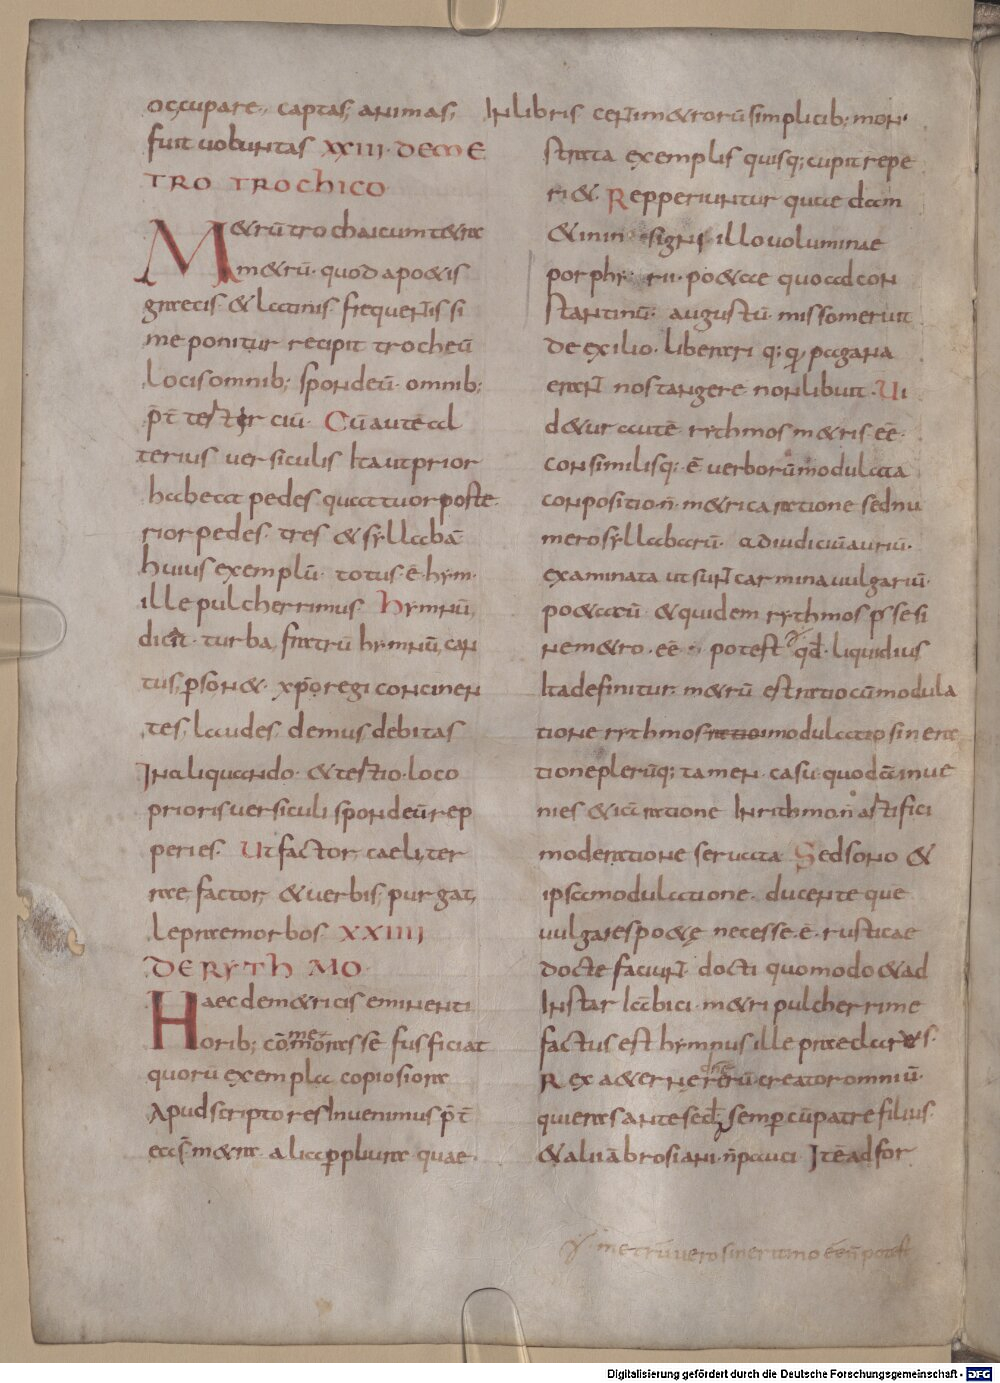 occupare,, captas; animas;
fuit uoluntas XXIII · DE ME
TRO TROCHICO
Metrū trochaicum tetra
metrū · quod a poetis
graecis & latinis frequentissi
me ponitur recipit trocheū
locis omnib; spondeū · omnib;
p̄t̄ tertiū Cū autē al
ternis uersiculis Ita ut prior
habeat pedes quattuor poste
rior pedes · tres & syllabā
huius exemplū · totus · ē · hym·
ille pulcherrimus hymnū,
dicat · turba, fratrū hymnū, can
tus, psonet · xp̄o regi concinen
tes, laudes, demus debitas
In aliquando · & tertio · loco
prioris uersiculi spondeū rep
peries · Ut factor, caeli, ter
rae, factor, & uerbis, purgat,
leprae morbos · XXIIII
DE RYTHMO
Haec de metricis eminenti
orib; cōmemorasse sufficiat
quorū exempla copiosiora
Apud scriptores Inuenimus p̄t̄
eas̄ metra alia p plura quae
In libris centimetrorū simplicib; mon·
strata exemplis quisq; cupit repe
riet · Repperiuntur quae dam
& in insigni illo uolumine
porphyrii · poetae quo ad con
stantinū · augustū · missomeruit
de exilio · liberari q; q, pagana
erant nos tangere non libuit · Ui
detur autē · rythmos metris · eē ·
consimilis q; · ē uerborū modulata
conpositio n̄ · metrica ratione sed nu
mero syllabarū · ad iudiciū auriū ·
examinata ut sunt carmina uulgariū ·
poetarū & quidem rythmos p se si
ne metro · eē · potest qd · liquidius
Ita definitur, metrū est ratio cū modula
tione rythmos ratio modulatio sine ra
tione plerūq; tamen · casu quodā inue
nies & iā ratione In rithmo n̄ artifici
moderatione seruata Sed sono &
ipsa modulatione · ducente que
uulgares poetę necesse · ē · rusticae
docte faciunt · docti quomodo & ad
Instar Iabici · metri pulcherrime
factus est hymnus ille praeclares ·
Rex aeterne dn̄e rerū creator omniū ·
qui eras ante secl̄a, semp cū patre filius ·
& alii ābrosiani · n̄ pauci · Itē ad for
metrū uero sine ritmo eē n̄ potest
Digitalisierung gefördert durch die Deutsche Forschungsgemeinschaft - DFG